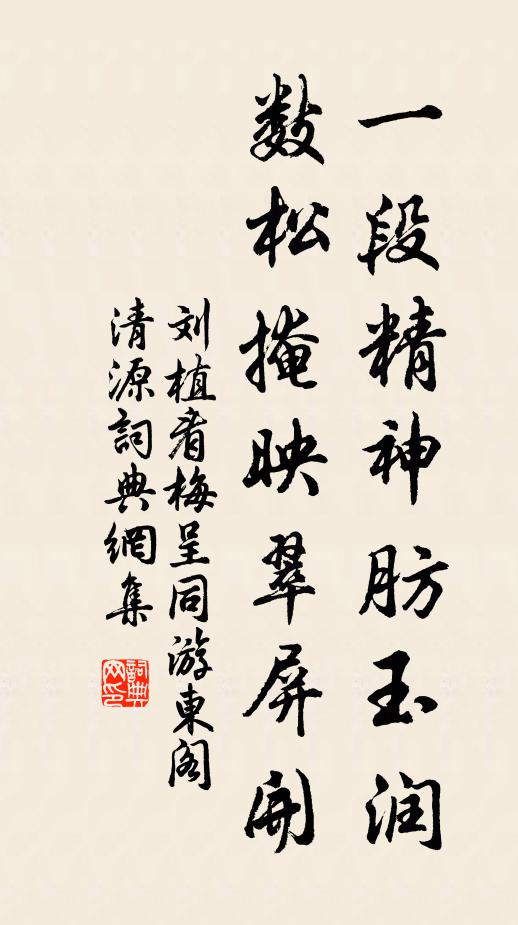 一段精神肪玉润
数松掩映翠屏開
刘植看梅呈同游東阁
清源詞典網集
詞典网印